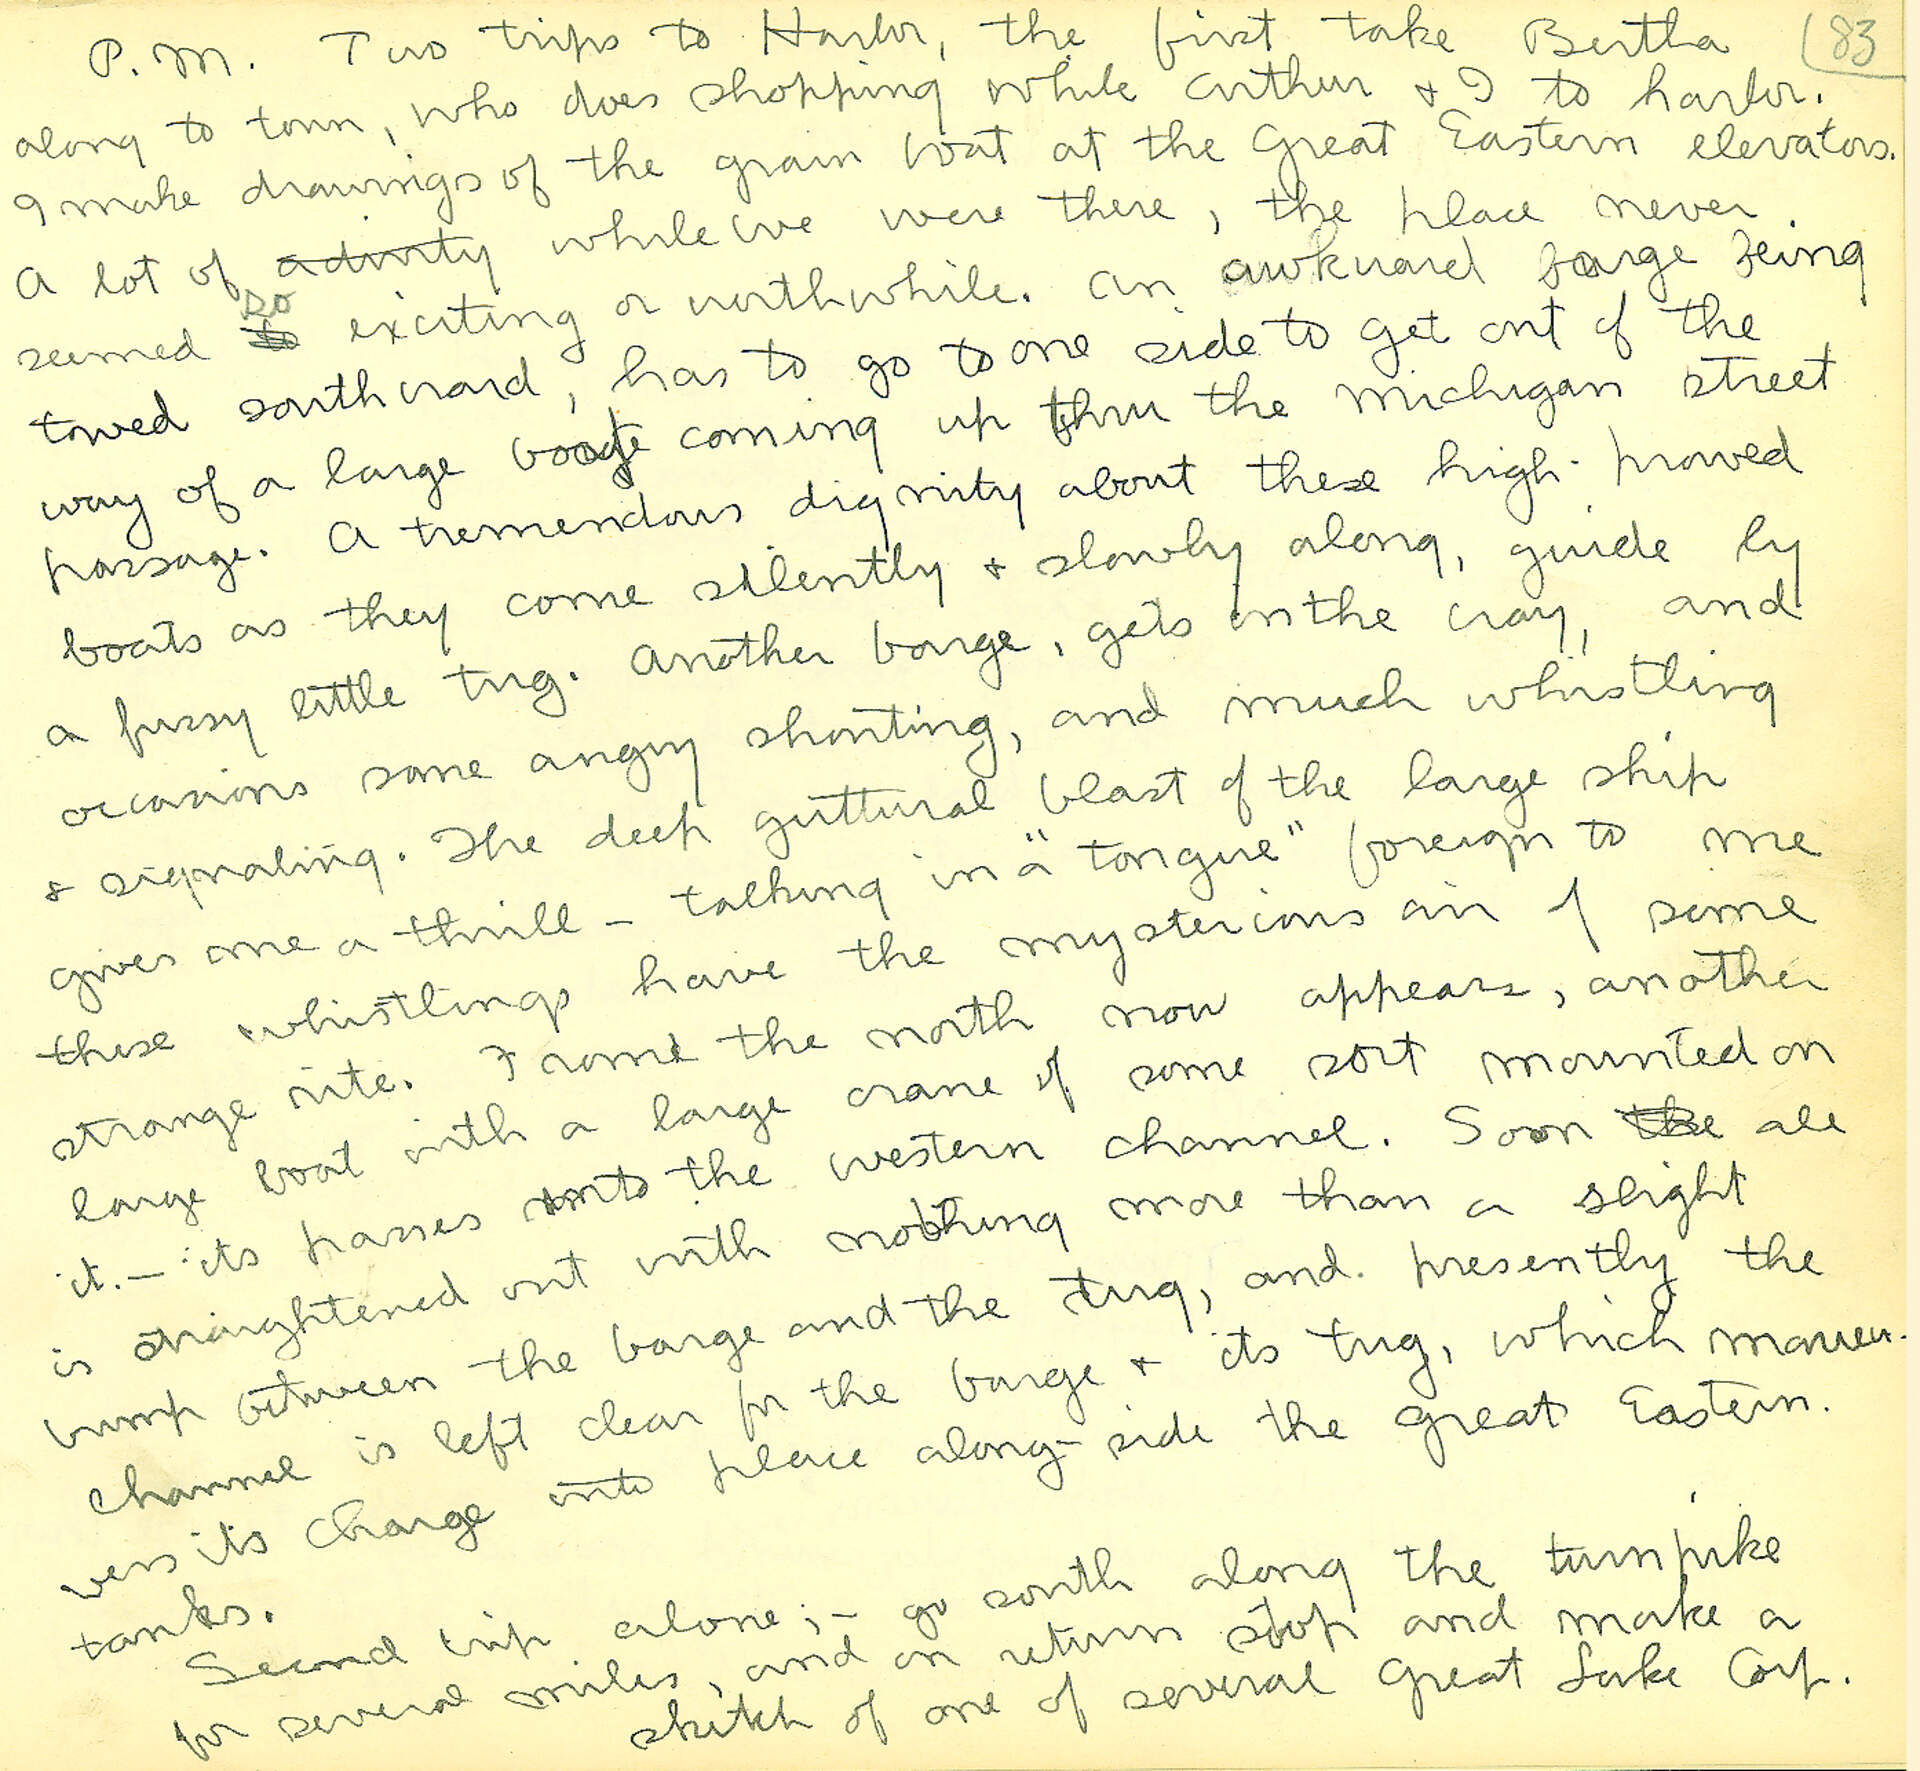 P.M. Two trips to Harbor, the first take Bertha 83
along to town, who does shopping while Arthur & I to harbor.
I make drawings of the grain boat at the Great Eastern elevators.
A lot of activity while we were there, the place never
seemed so exciting or worthwhile. An awkward barge being
towed southward, has to go to one side to get out of the
way of a large boat coming up thru the Michigan street
passage. A tremendous dignity about these high-prowed
boats as they come silently & slowly along, guide by
a fussy little tug. Another barge, gets in the way, and
occasions some angry shouting, and much whistling
& signaling. The deep guttural blast of the large ship
gives me a thrill – talking in a "tongue" foreign to me
these whistlings have the mysterious air of some
strange rite. From the north now appears, another
large boat with a large crane of some sort mounted on
it. – its passes into the western channel. Soon all
is straightened out with nothing more than a slight
bump between the barge and the tug, and presently the
channel is left clear for the barge & its tug, which maneu-
vers its charge into place along-side the Great Eastern.
tanks.
Second trip alone; – go south along the turnpike
for several miles, and on return stop and make a
sketch of one of several Great Lake Corp.